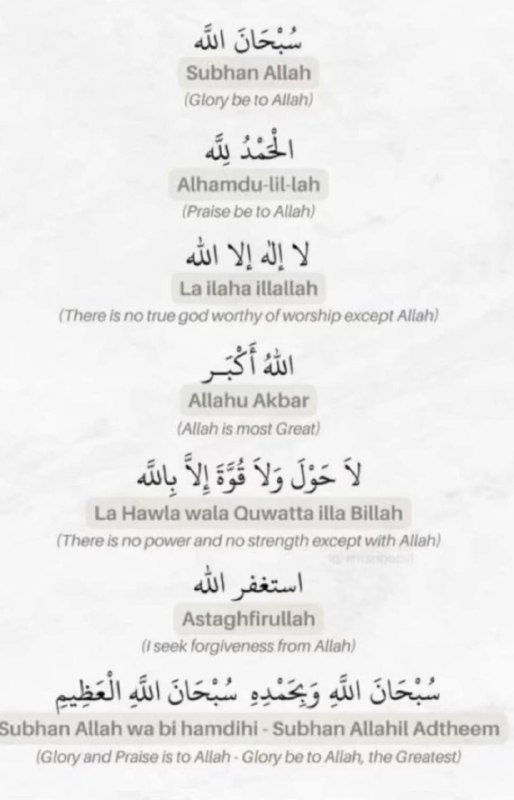 سُبْحَانَ اللَّه
Subhan Allah
(Glory be to Allah)
الْحَمْدُ لِلَّه
Alhamdu-lil-lah
(Praise be to Allah)
لا إله إلا الله
La ilaha illallah
(There is no true god worthy of worship except Allah)
اللهُ أَكْبَـر
Allahu Akbar
(Allah is most Great)
لاَ حَوْلَ وَلاَ قُوَّةَ إِلاَّ بِاللَّه
La Hawla wala Quwatta illa Billah
(There is no power and no strength except with Allah)
استغفر الله
Astaghfirullah
(I seek forgiveness from Allah)
سُبْحَانَ اللَّهِ وَبِحَمْدِهِ سُبْحَانَ اللَّهِ الْعَظِيمِ
Subhan Allah wa bi hamdihi - Subhan Allahil Adtheem
(Glory and Praise is to Allah - Glory be to Allah, the Greatest)